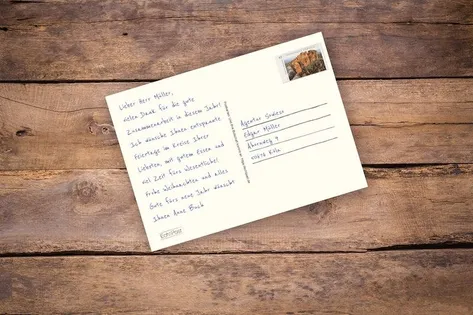 Lieber Herr Müller,
vielen Dank für die gute
Zusammenarbeit in diesem Jahr!
Ich wünsche Ihnen entspannte
Feiertage im Kreise Ihrer
Liebsten, mit gutem Essen und
viel Zeit fürs Wesentliche!
Frohe Weihnachten und alles
Gute fürs neue Jahr wünscht
Ihnen Anne Buch
Agentur
Edgar Müller
Ahornweg 4
Köln